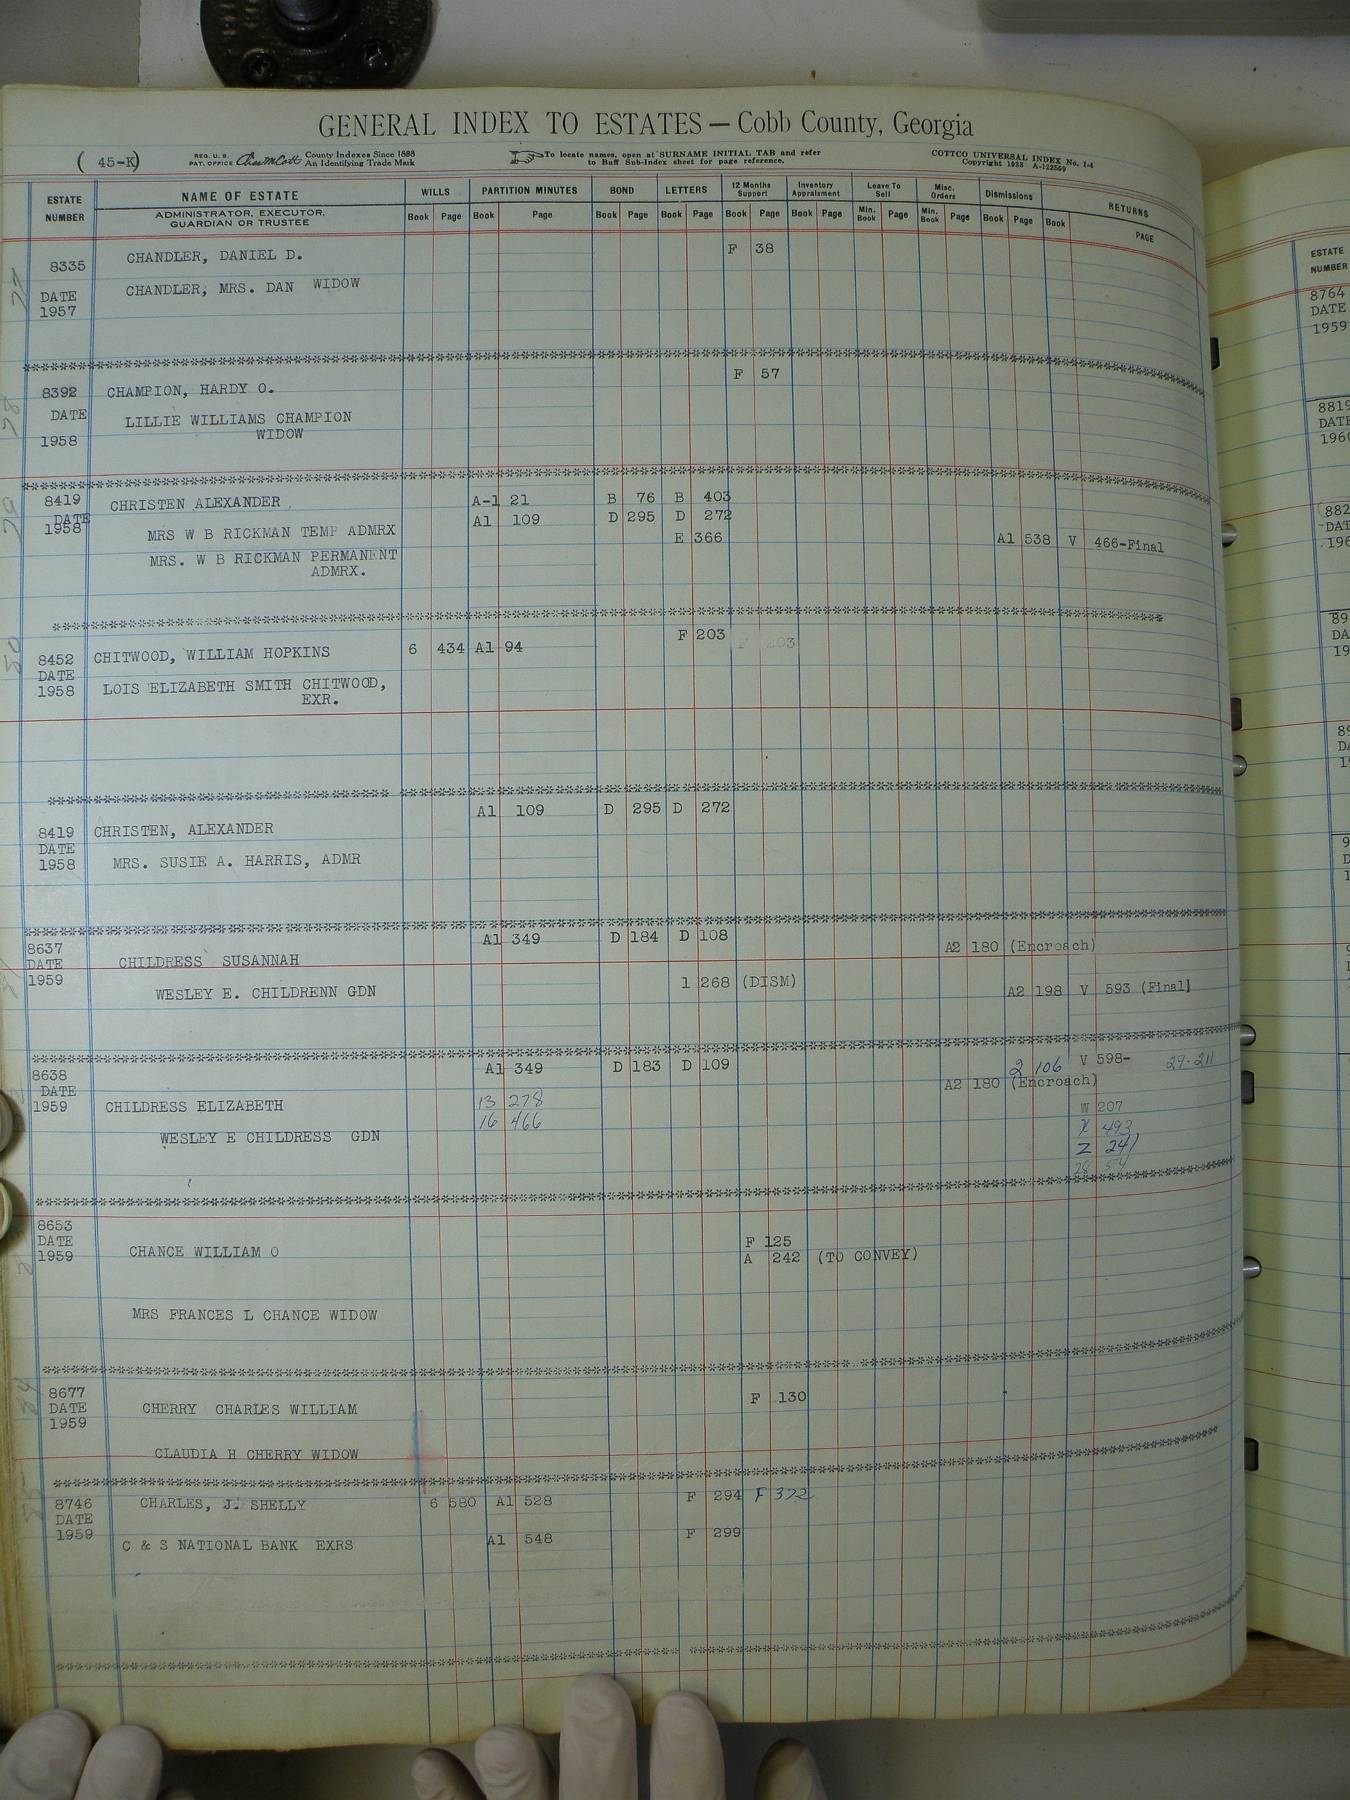 GENERAL INDEX TO ESTATES — Cobb County, Georgia
( 45-K) REG. U. S. PAT. OFFICE County Indexes Since 1888 An Identifying Trade Mark To locate names, open at SURNAME INITIAL TAB and refer to Buff Sub-Index sheet for page reference. COTTCO UNIVERSAL INDEX No. 1-4 Copyright 1923 A-122560
ESTATE NUMBER NAME OF ESTATE WILLS PARTITION MINUTES BOND LETTERS 12 Months Support Inventory Appraisment Leave To Sell Misc. Orders Dismissions RETURNS
ADMINISTRATOR, EXECUTOR, GUARDIAN OR TRUSTEE Book Page Book Page Book Page Book Page Book Page Book Page Min. Book Page Min. Book Page Book Page Book PAGE
8335 CHANDLER, DANIEL D. F 38
DATE CHANDLER, MRS. DAN WIDOW
1957
8392 CHAMPION, HARDY O. F 57
DATE LILLIE WILLIAMS CHAMPION
1958 WIDOW
8419 CHRISTEN ALEXANDER A-1 21 B 76 B 403
DATE A1 109 D 295 D 272
1958 MRS W B RICKMAN TEMP ADMRX E 366 A1 538 V 466-Final
MRS. W B RICKMAN PERMANENT
ADMRX.
F 203 F 203
8452 CHITWOOD, WILLIAM HOPKINS 6 434 A1 94
DATE
1958 LOIS ELIZABETH SMITH CHITWOOD,
EXR.
A1 109 D 295 D 272
8419 CHRISTEN, ALEXANDER
DATE
1958 MRS. SUSIE A. HARRIS, ADMR
A1 349 D 184 D 108
8637 A2 180 (Encroach)
DATE CHILDRESS SUSANNAH
1959 1 268 (DISM)
WESLEY E. CHILDRENN GDN A2 198 V 593 (Final)
A1 349 D 183 D 109 2 106 V 598- 29-211
8638 A2 180 (Encroach)
DATE
1959 CHILDRESS ELIZABETH 13 278 W 207
16 466 X 493
WESLEY E CHILDRESS GDN Z 241
28 54
8653
DATE F 125
1959 CHANCE WILLIAM O A 242 (TO CONVEY)
MRS FRANCES L CHANCE WIDOW
8677 F 130
DATE CHERRY CHARLES WILLIAM
1959
CLAUDIA H CHERRY WIDOW
8746 CHARLES, J. SHELLY 6 580 A1 528 F 294 F 372
DATE
1959 C & S NATIONAL BANK EXRS A1 548 F 299
ESTATE NUMBER
8764
DATE
1959
8819
DATE